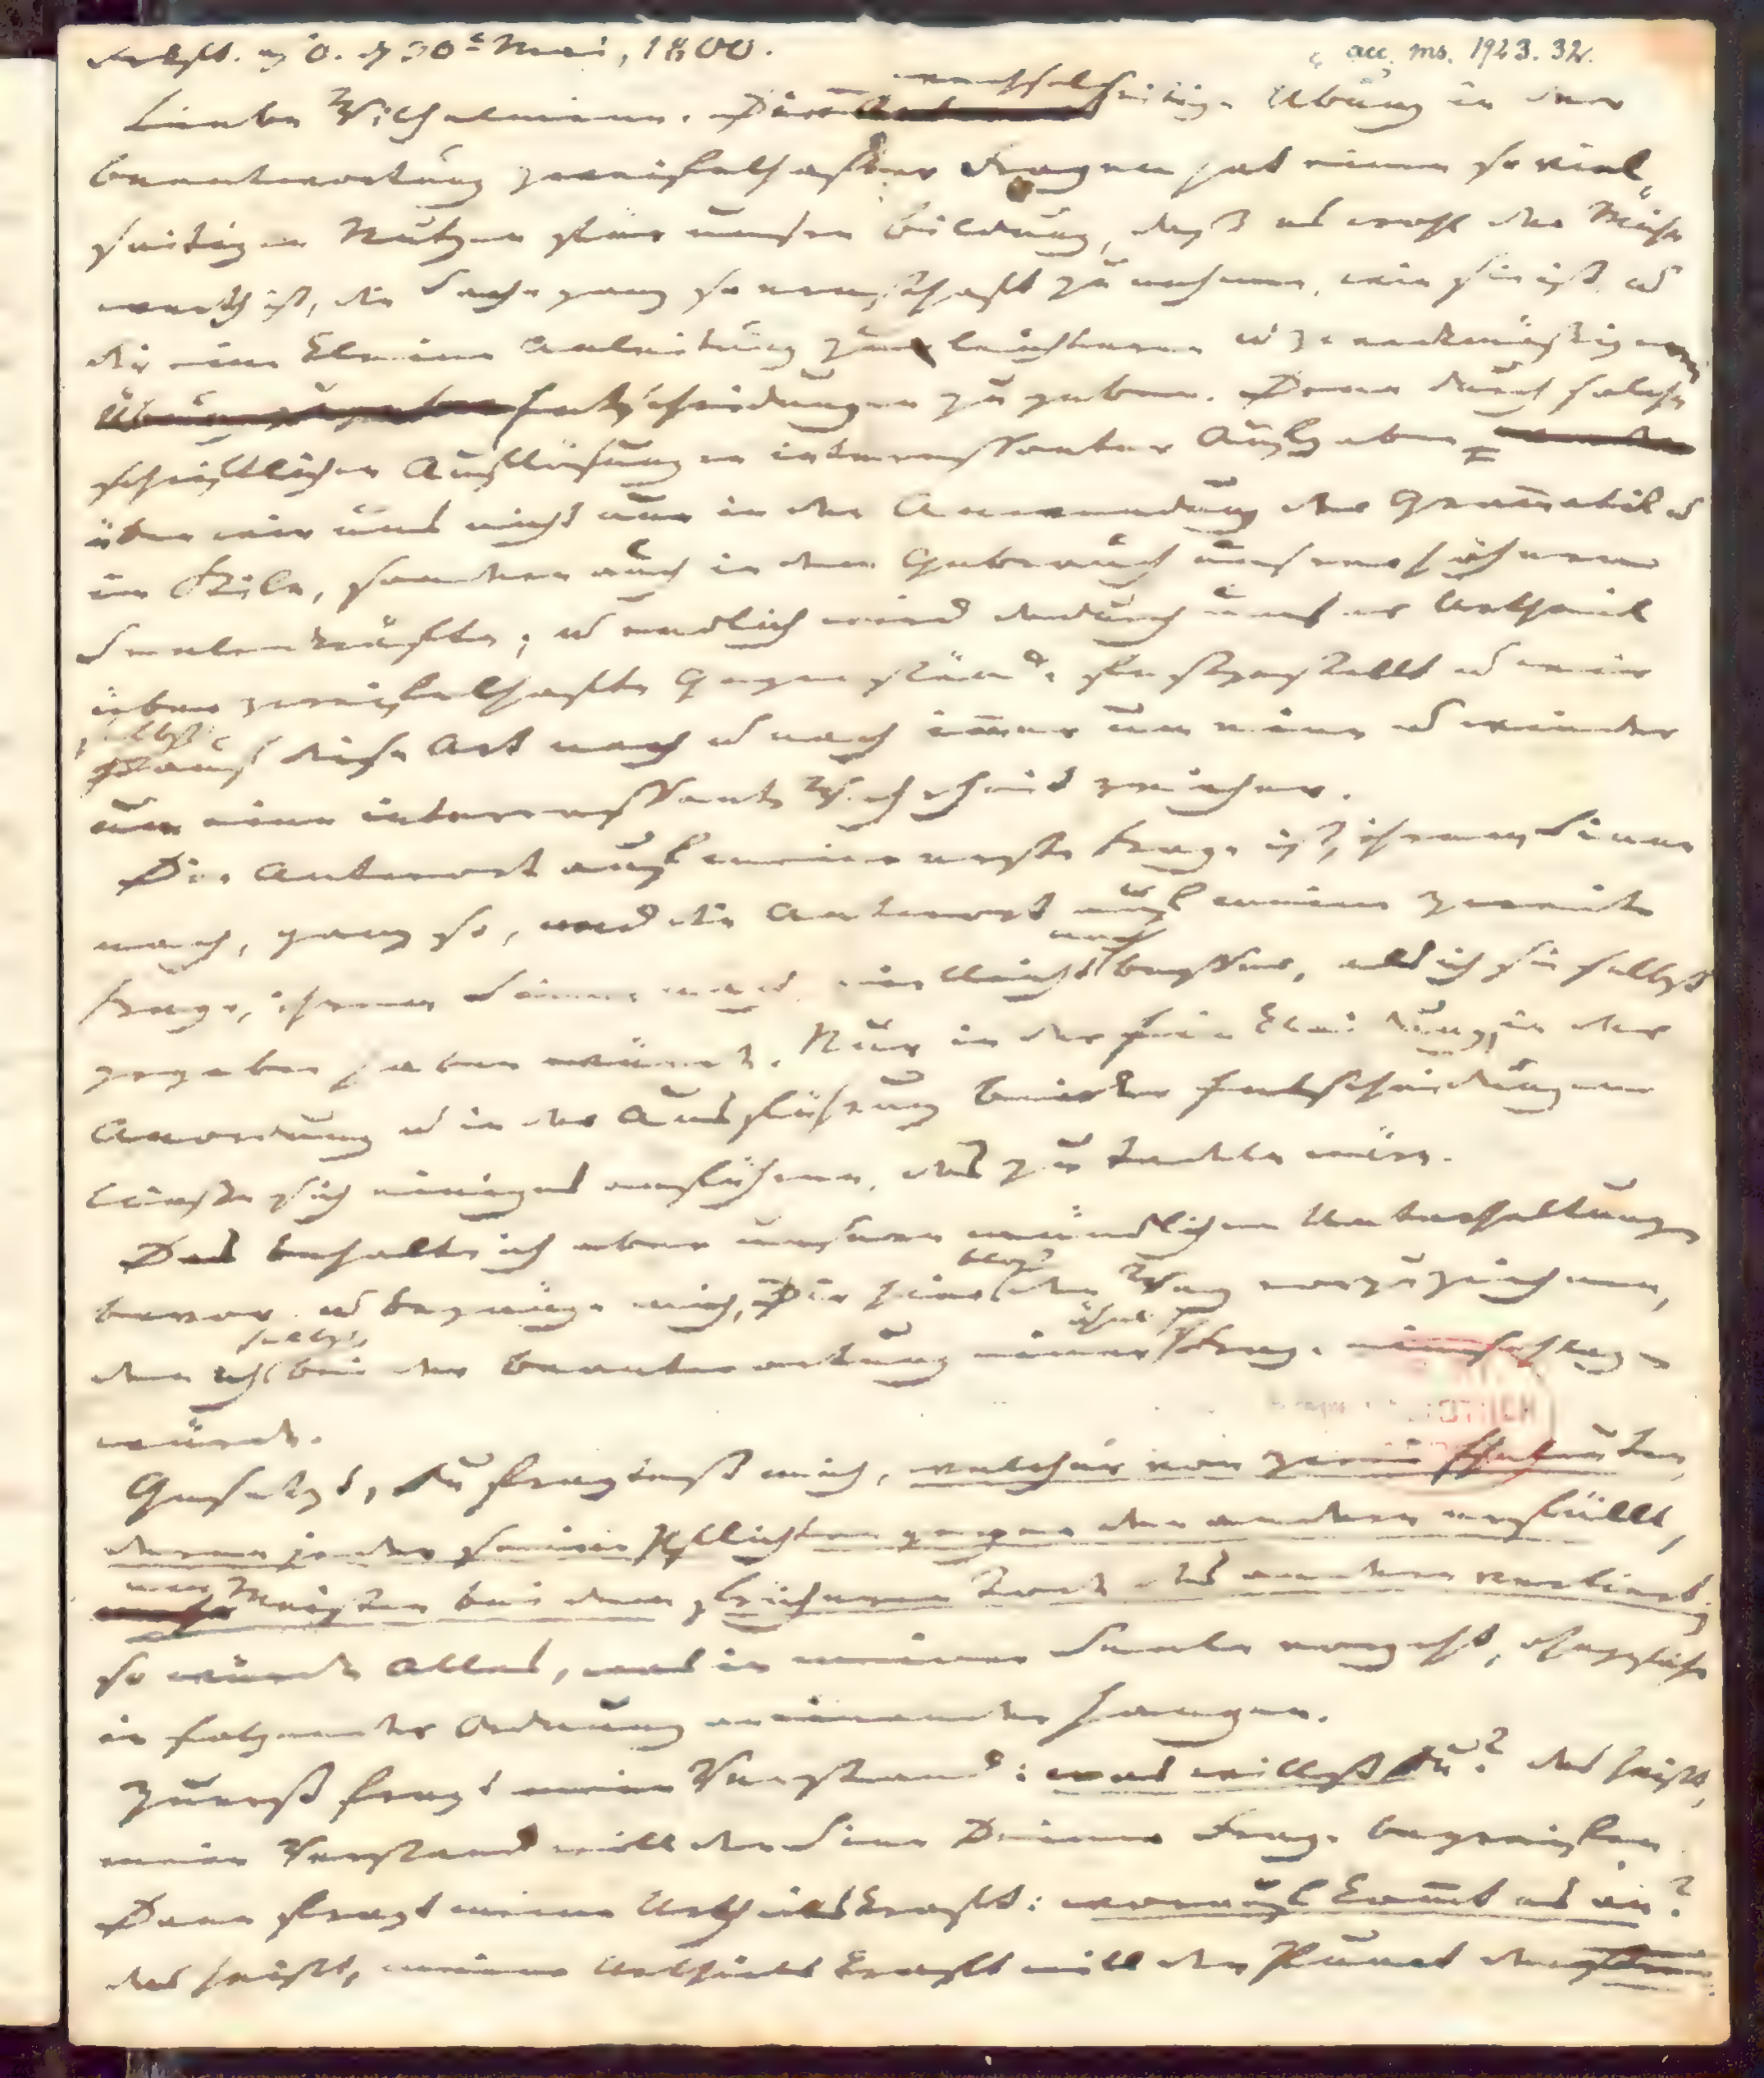 Frkft. a. O. d. 30t Mai, 1800. acc. ms. 1923. 32.
Liebe Wilhelmine. Die wechselseitige Übung in der
Beantwortung zweifelhafter Fragen hat einen so viel-
seitigen Nutzen für unsre Bildung, daß es wohl der Mühe
werth ist, die Sache ganz so ernsthaft zu nehmen, wie sie ist, u
dir eine kleine Anleitung zu leichteren u zweckmäßigeren
Entscheidungen zu geben. Denn durch solche
schriftlichen Auflösungen interessanter Aufgaben
üben wir uns nicht nur in der Anwendung der Gramatik u
im Stile, sondern auch in dem Gebrauch unsrer höheren
Seelenkräfte; u endlich wird dadurch unser Urtheil
über zweifelhafte Gegenstände festgestellt u wir
selbst auf diese Art nach u nach imer um eine u wieder
um eine interessante Wahrheit reicher.
Die Antwort auf meine erste Frage ist, ihrem Sinne
nach, ganz so, und die Antwort auf meine zweite
Frage, ihrem Sinne nach vielleicht noch besser, als ich sie selbst
gegeben haben würde. Nur in der Einkleidung, in der
Anordnung u in der Ausführung beider Entscheidungen
ließe sich einiges anführen, das zu tadeln wäre.
Das behalte ich aber unsern mündlichen Unterhaltungen
bevor u begnüge mich, Dir hier bloß den Weg vorzuzeichnen,
den ich selbst bei der Beantwortung einer ähnl. Frage einschlagen
würde.
Gesetzt, Du fragtest mich, welcher von zwei Eheleuten,
deren jeder seine Pflichten gegen den andern erfüllt,
am Meisten bei dem früheren Tode des andern verliert;
so würde Alles, was in meiner Seele vorgeht, ohngefähr
in folgender Ordnung aneinander hangen.
Zuerst fragt mein Verstand: was willst Du? das heißt,
mein Verstand will den Sinn Deiner Frage begreifen.
Dann fragt meine Urtheilskraft: worauf komt es an?
das heißt, meine Urtheilskraft will den Punct der